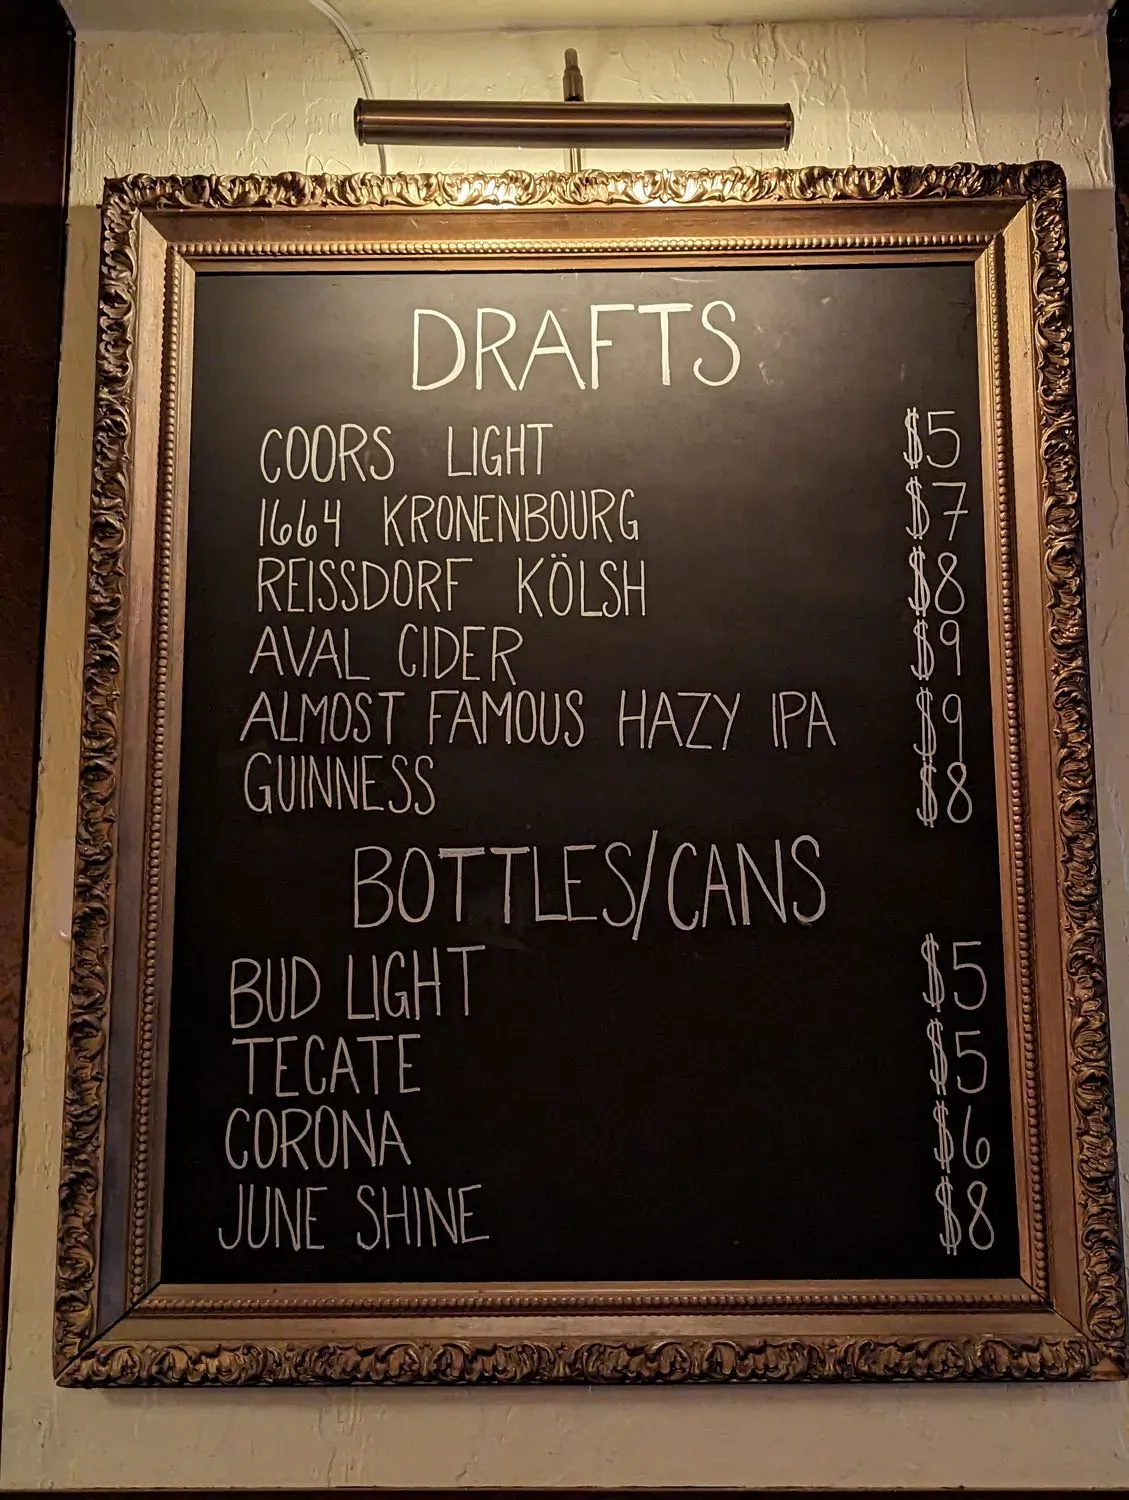 DRAFTS
COORS LIGHT $5
1664 KRONENBOURG $7
REISSDORF KÖLSH $8
AVAL CIDER $9
ALMOST FAMOUS HAZY IPA $9
GUINNESS $8
BOTTLES/CANS
BUD LIGHT $5
TECATE $5
CORONA $6
JUNE SHINE $8